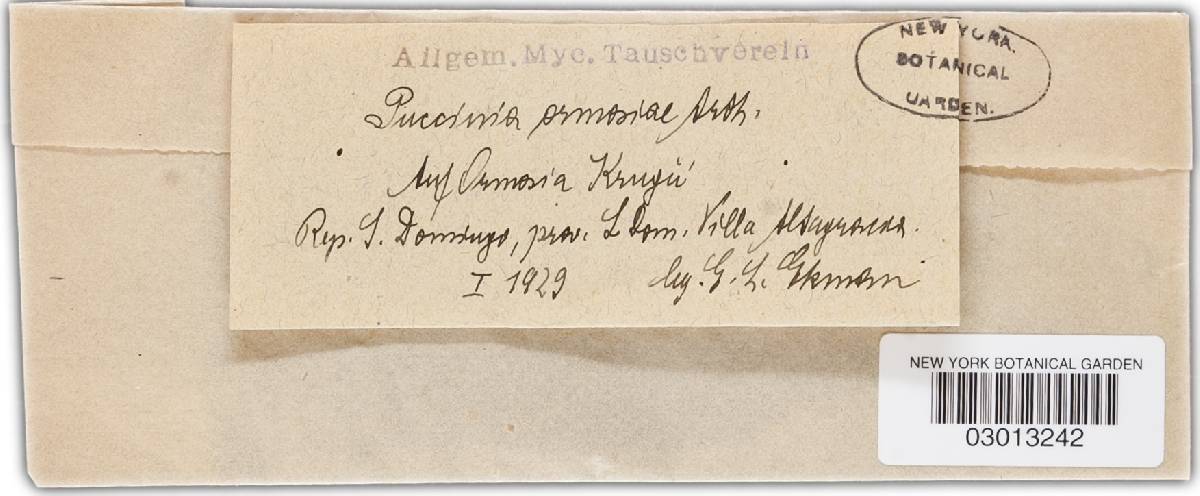 Allgem. Myc. Tauschverein
NEW YORK
BOTANICAL
GARDEN.
Puccinia ormosiae Arth.
Auf Ormosia Krugii
Rep. S. Domingo, prov. S Dom. Villa Altagracia.
I 1929 leg. E. L. Ekman
NEW YORK BOTANICAL GARDEN
03013242